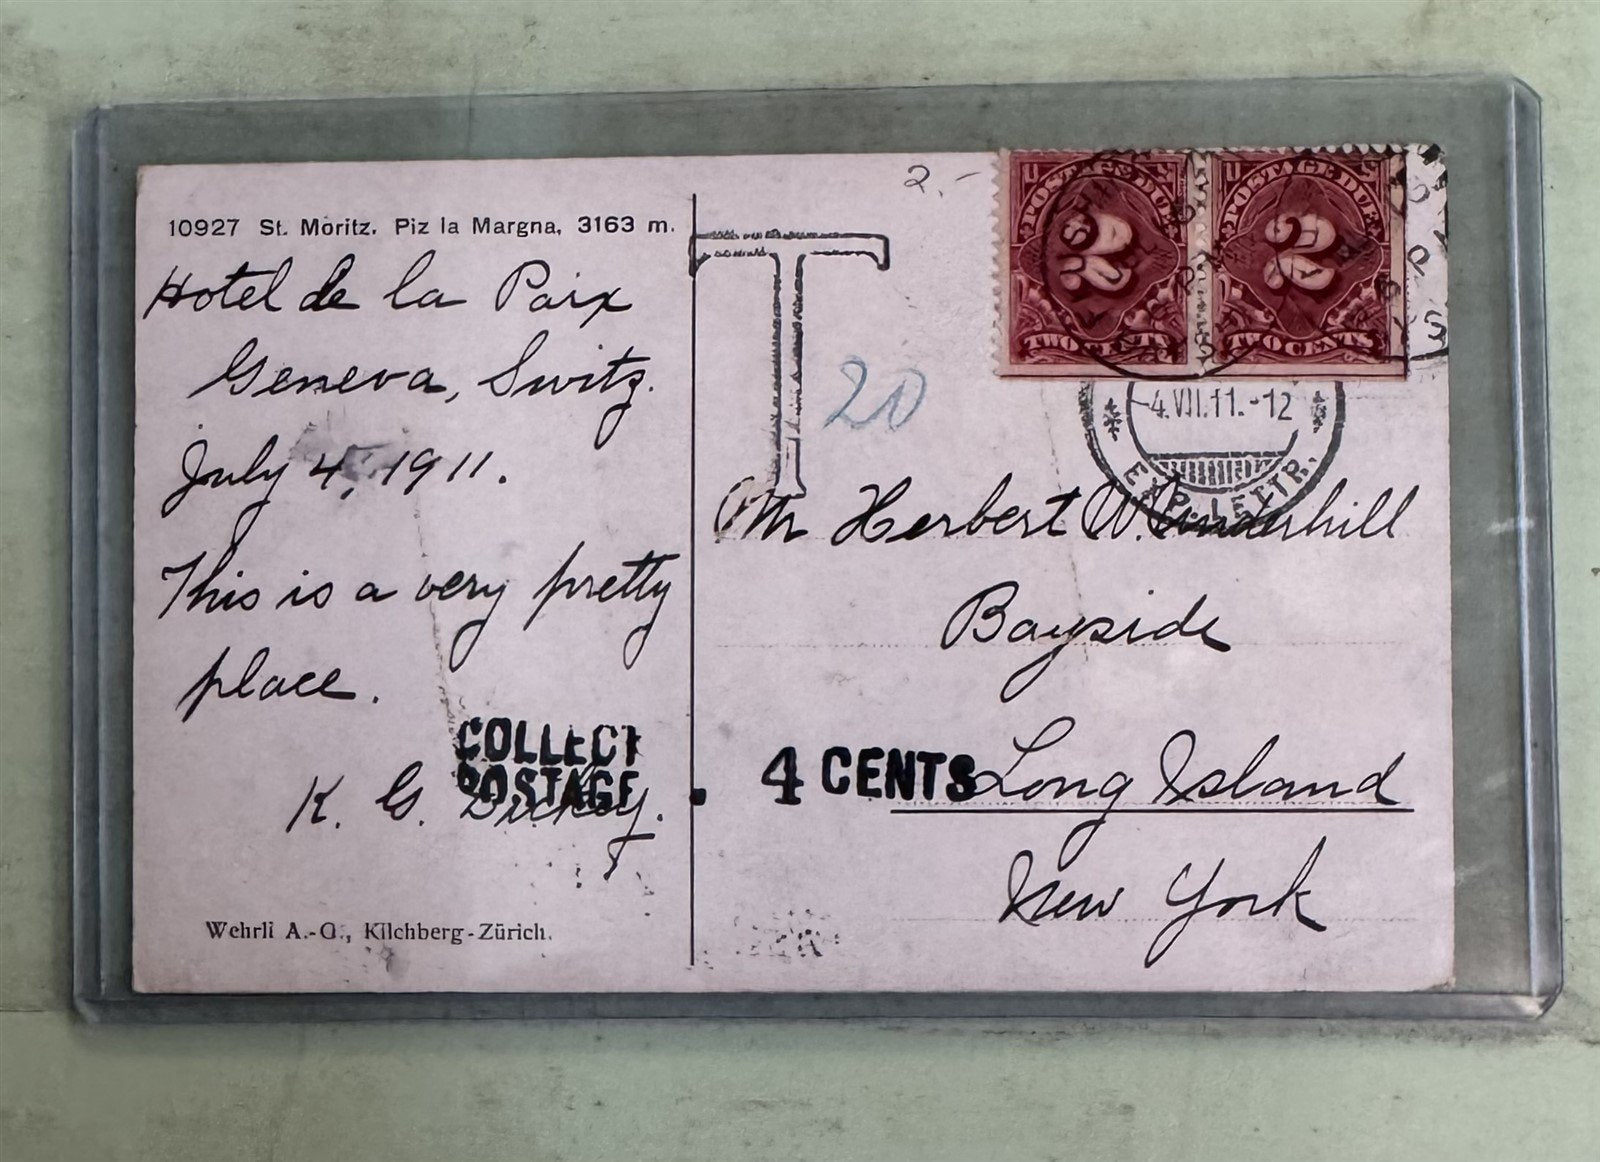 10927 St. Moritz. Piz la Margna, 3163 m.
Hotel de la Paix
Geneva, Switz.
July 4, 1911.
This is a very pretty
place.
K. G. Dickey.
COLLECT
POSTAGE
Wehrli A.-G., Kilchberg-Zürich.
2.-
T
20
U
POSTAGE DUE
2
TWO CENTS
U
POSTAGE DUE
2
TWO CENTS
-4.VII.11.-12
EXP. LETTR.
Mr Herbert W. Underhill
Bayside
4 CENTS
Long Island
New York